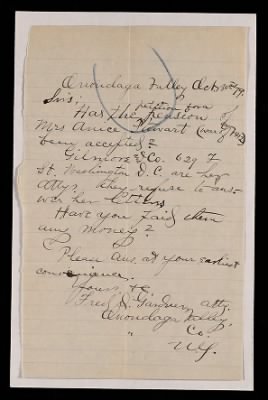 Onondaga Valley Oct 10th 79.
Sirs:
petition for a
Has the pension of
Mrs Anice Stewart (war of 1812)
being accepted?
Gilmore & Co. 629 F
St. Washington D.C. are her
Attys, they refuse to ans-
wer her letters
Have you paid them
any money?
Please Ans. at your earliest
convenience.
Yours &c
Fred. D. Gardner, atty.
Onondaga Valley,
" Co.
N.Y.